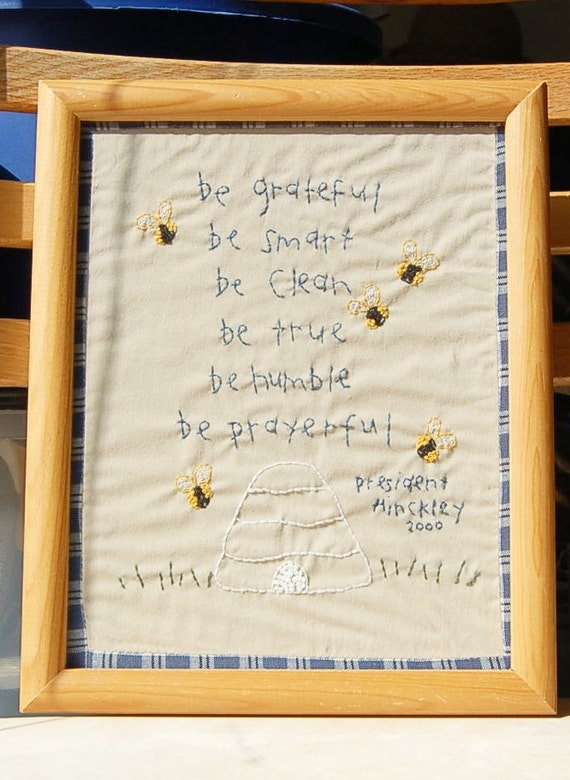 be grateful
be smart
be Clean
be true
be humble
be prayerful
president
Hinckley
2000